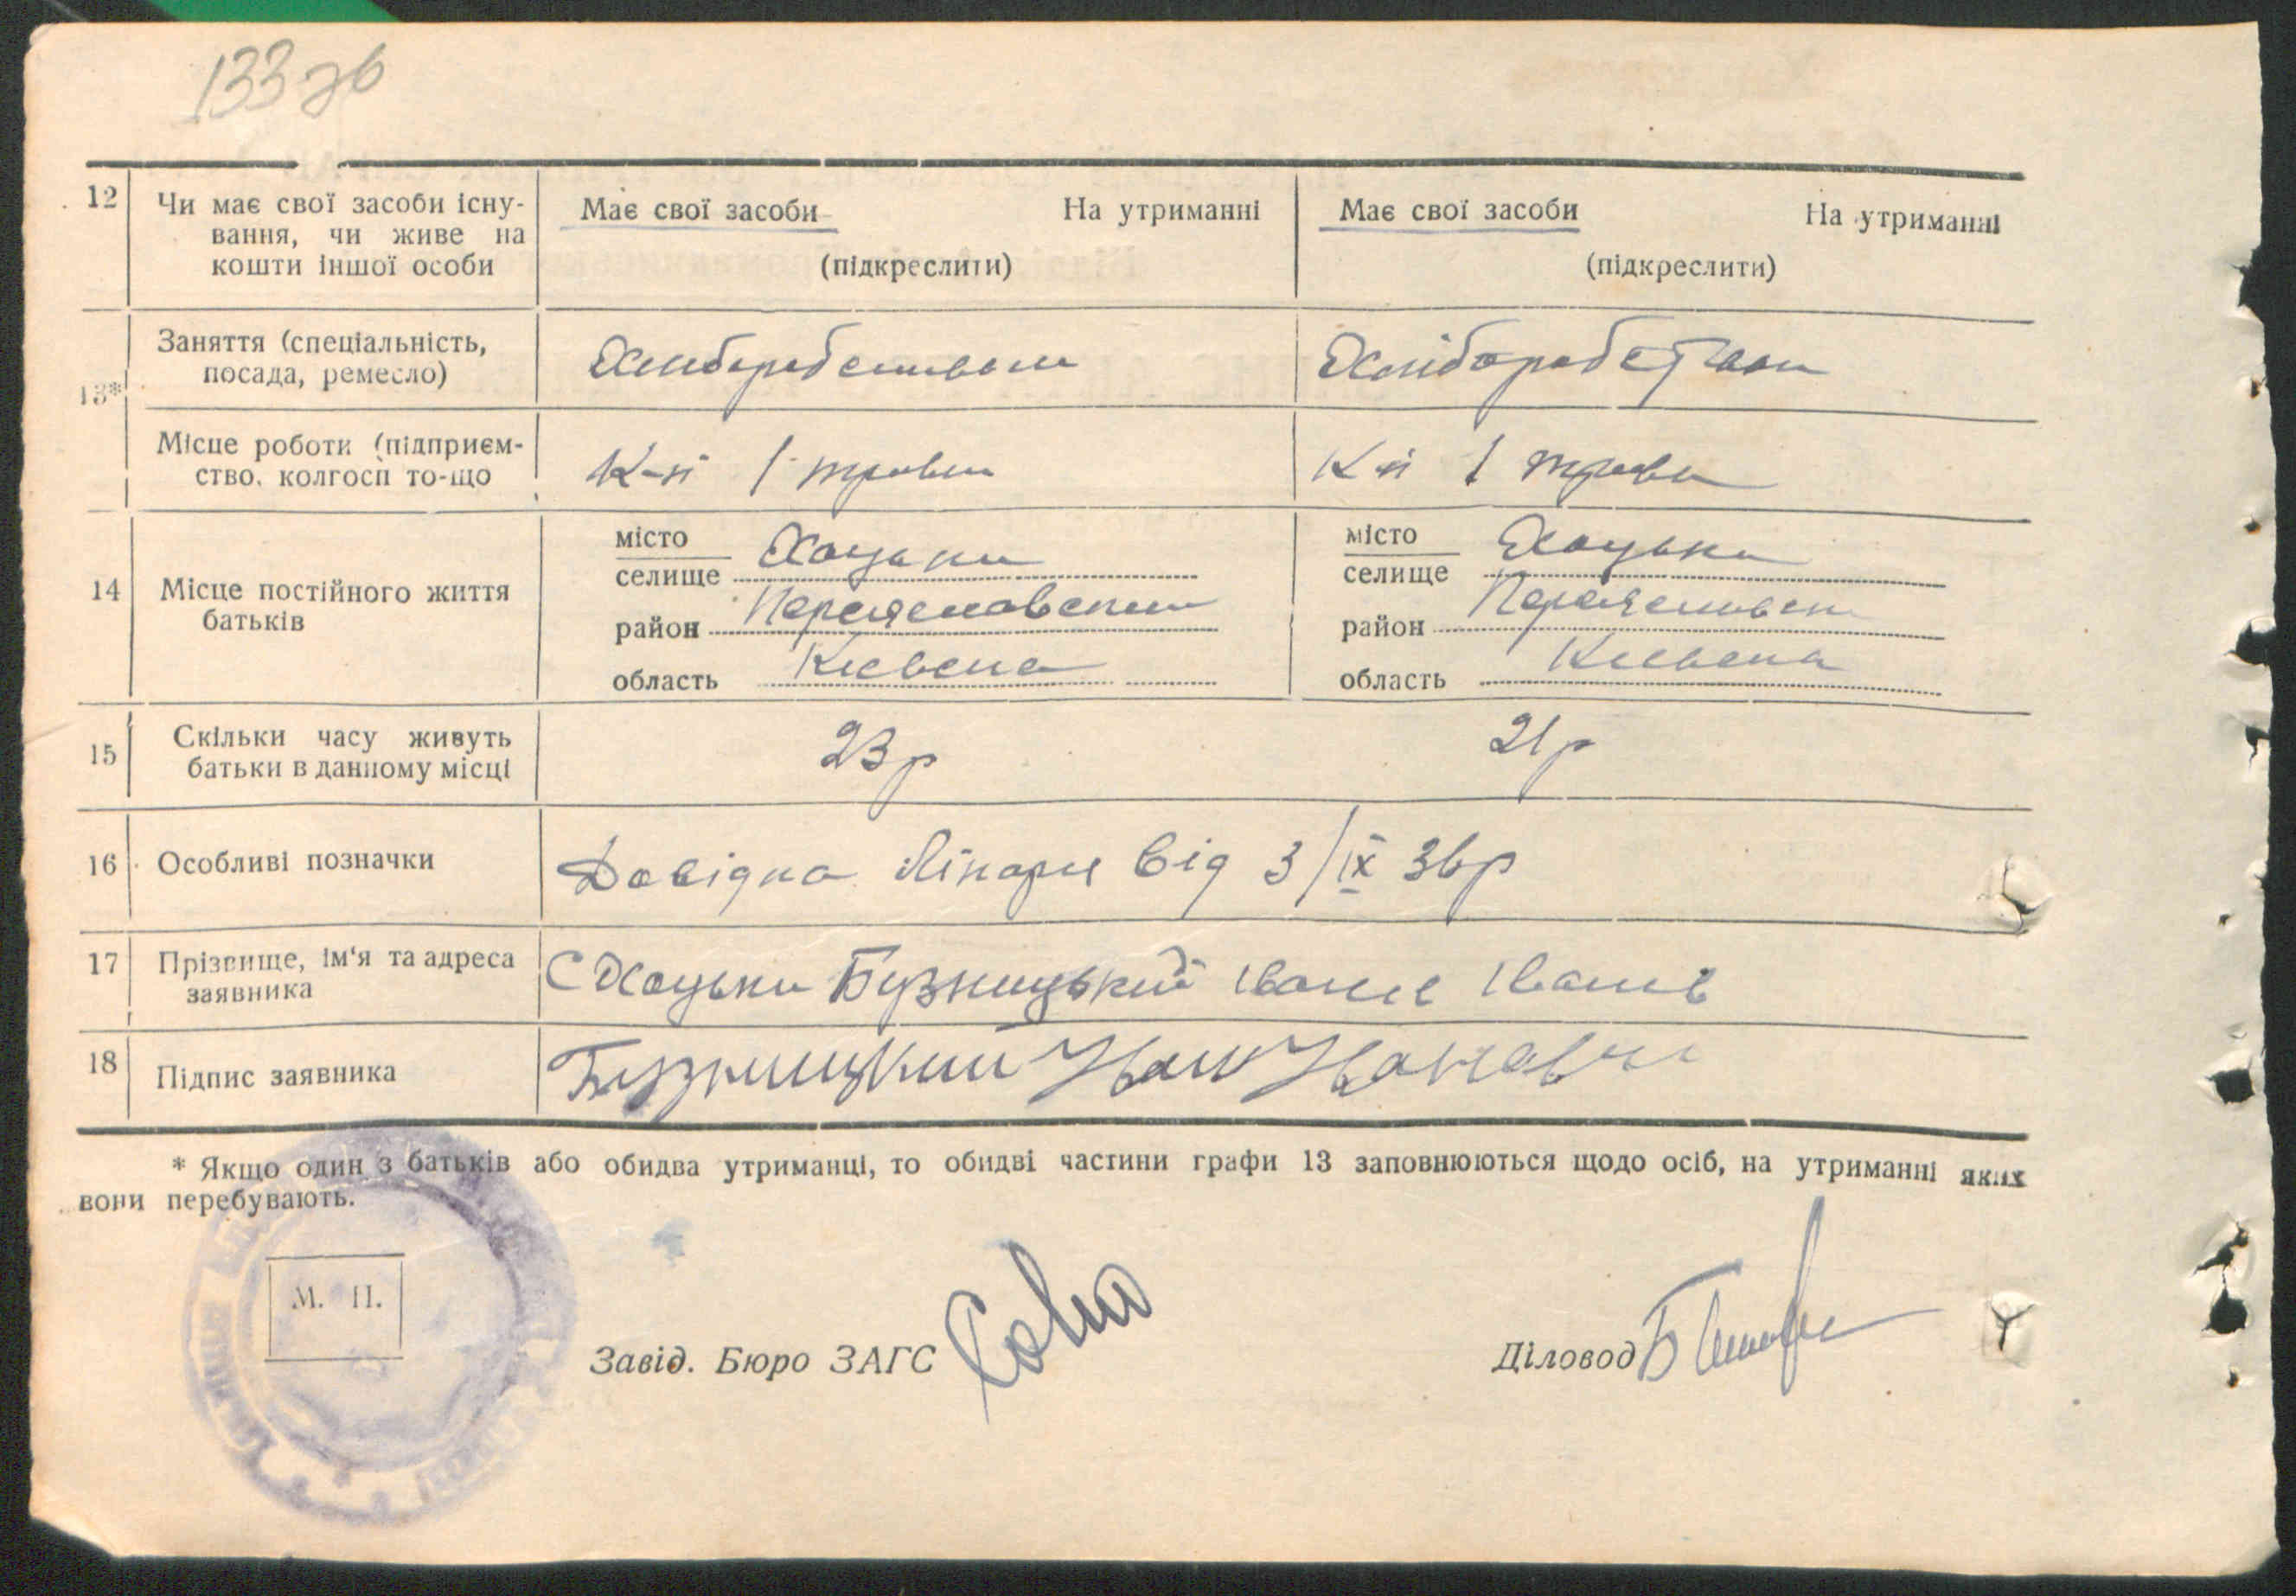 133 зв
12 Чи має свої засоби існу-
вання, чи живе на
кошти іншої особи
Має свої засоби На утриманні
(підкреслити)
Має свої засоби На утриманні
(підкреслити)
13*
Заняття (спеціальність,
посада, ремесло)
Хліборобством
Хліборобством
Місце роботи (підприєм-
ство, колгосп то-що
К-п 1 травн
К-п 1 травн
14 Місце постійного життя
батьків
місто
селище Хоцьки
район Переяславський
область Київська
місто
селище Хоцьки
район Переяславськ
область Київська
15 Скільки часу живуть
батьки в данному місці
23 р
21 р
16 Особливі позначки
Довідка Лікаря від 3/IX 36р
17 Прізвище, ім'я та адреса
заявника
С Хоцьки Бузницький Іван Іванів
18 Підпис заявника
Бузницкий Иван Иванович
* Якщо один з батьків або обидва утриманці, то обидві частини графи 13 заповнюються щодо осіб, на утриманні яких
вони перебувають.
М. П.
Завід. Бюро ЗАГС
Діловод